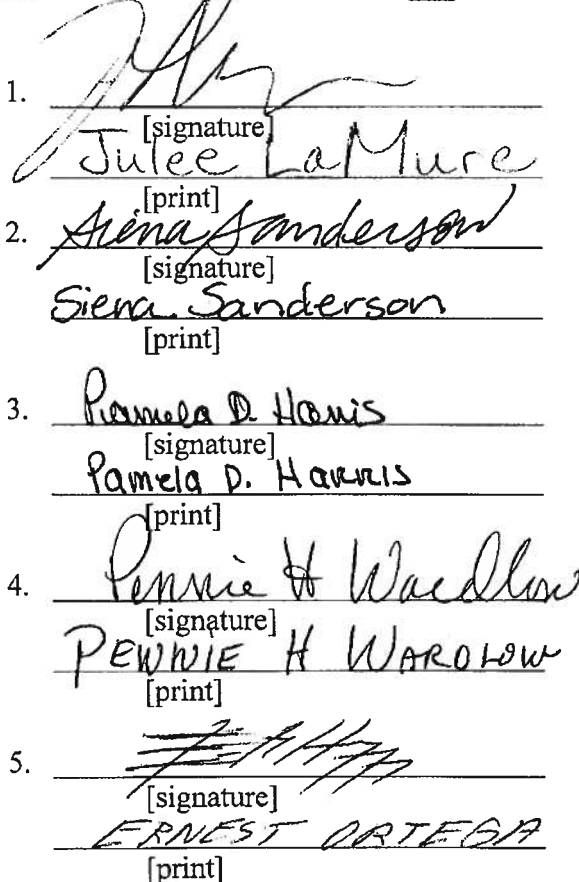 1.
[signature]
Julee LaMure
[print]
2. Siena Sanderson
[signature]
Siena Sanderson
[print]
3. Pamela D. Harris
[signature]
Pamela D. Harris
[print]
4. Pennie H Wardlow
[signature]
PENNIE H WARDLOW
[print]
5.
[signature]
ERNEST ORTEGA
[print]